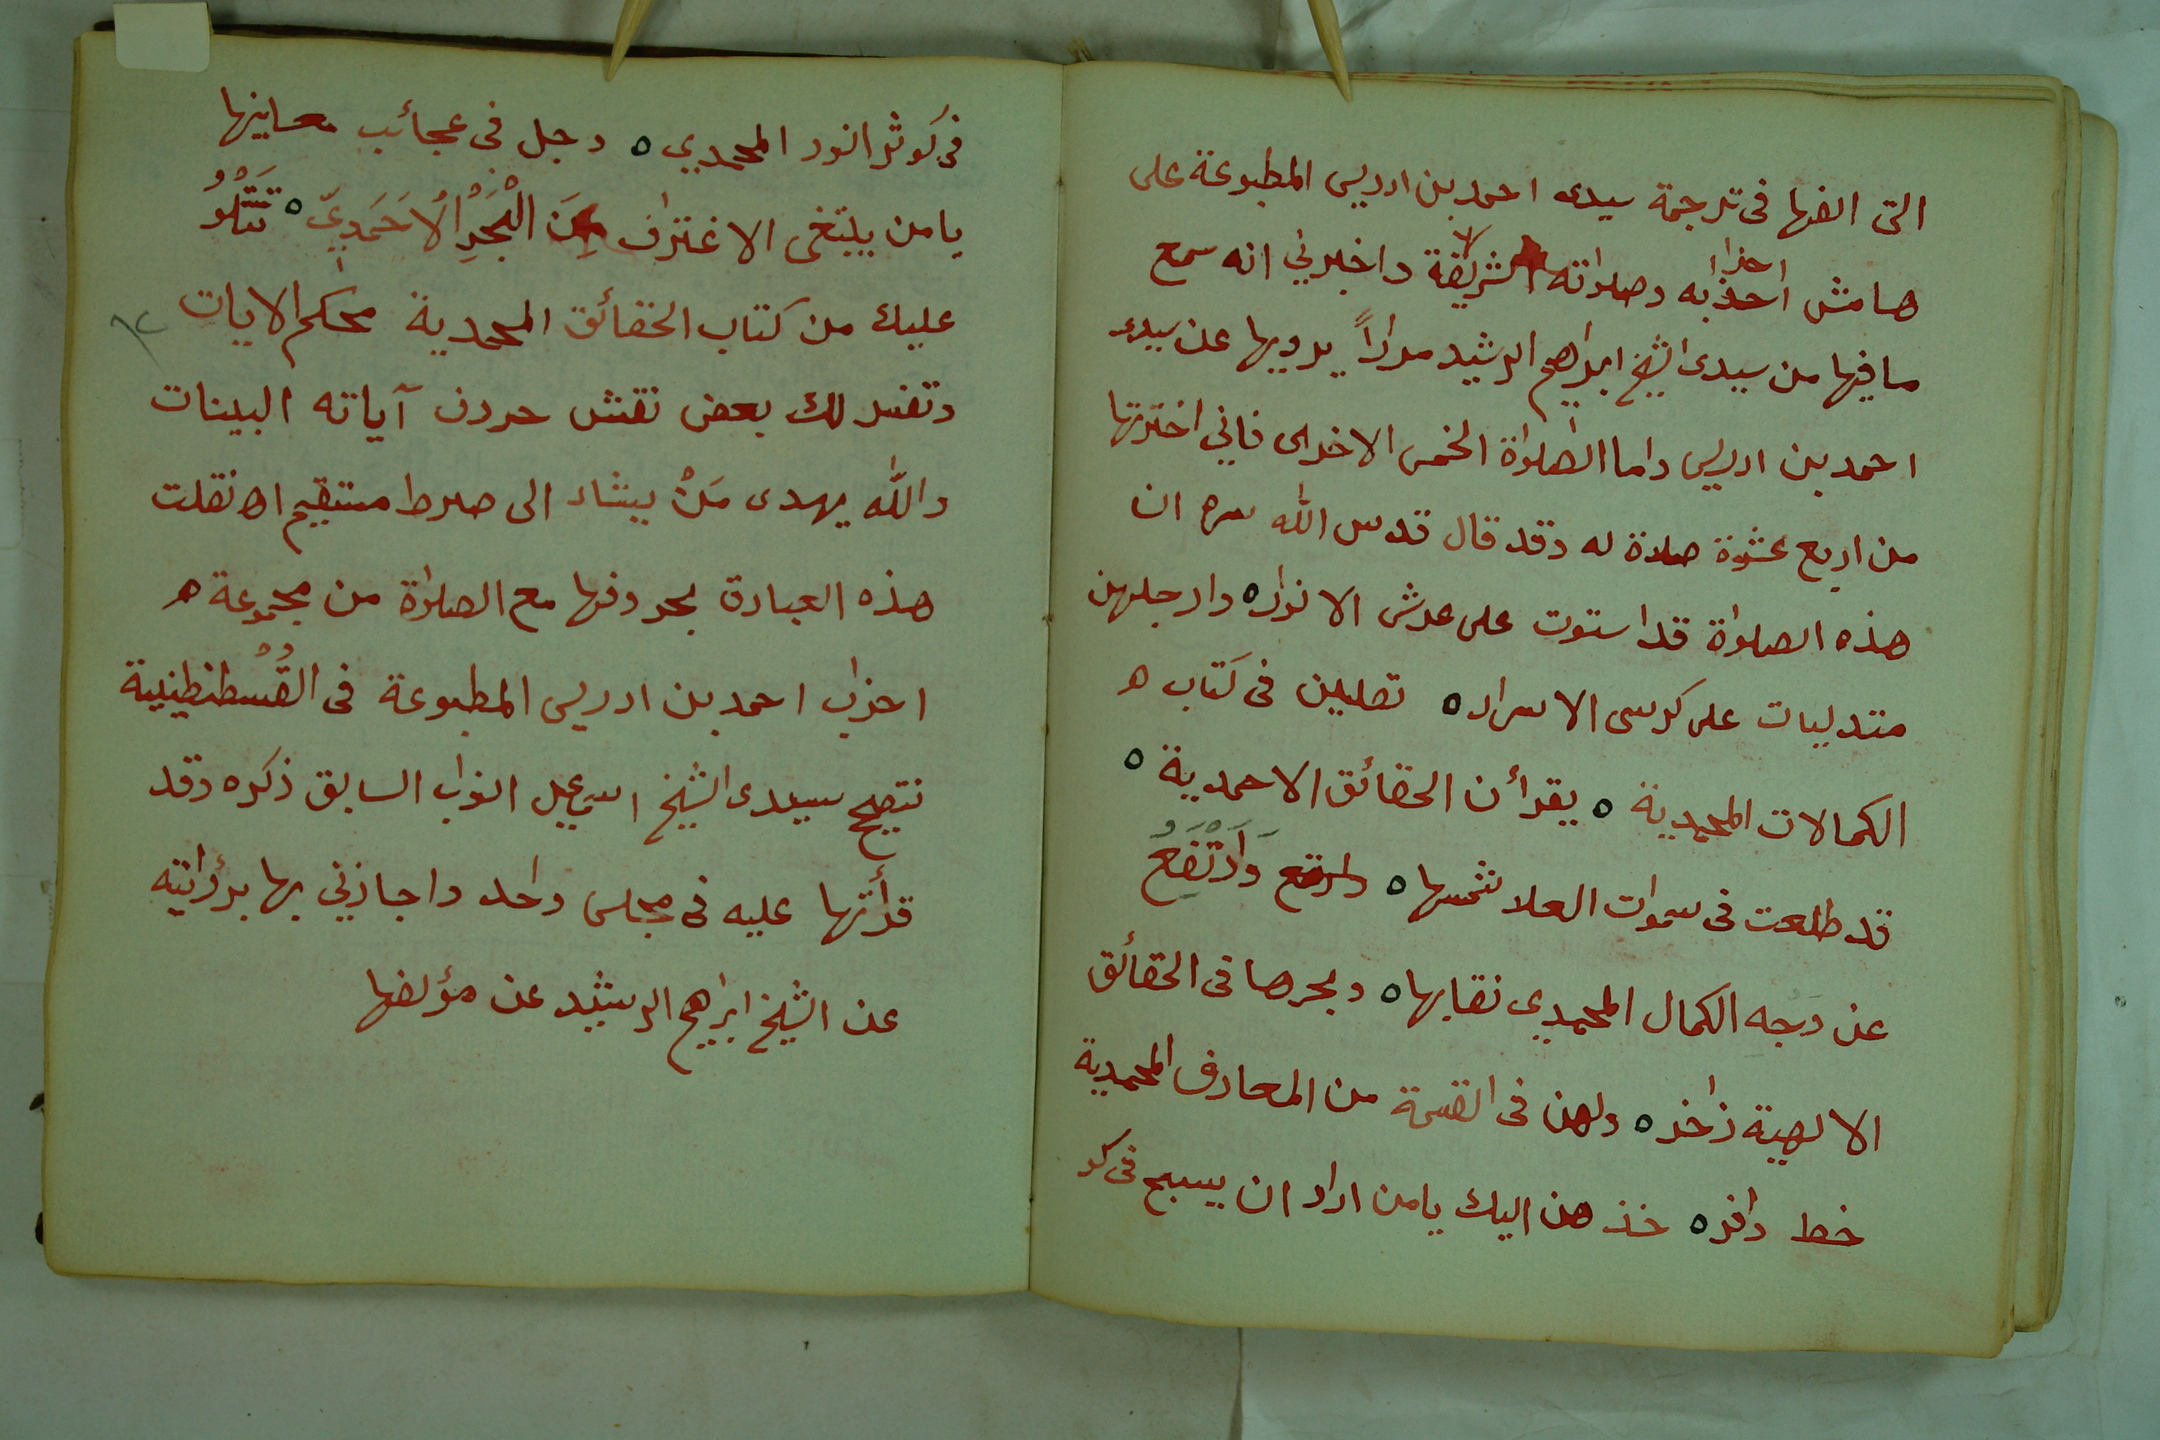 التى الفها فى ترجمة سيدى احمد بن ادريس المطبوعة على
هامش احذابه وصلواته الشريفة واخبرني انه سمع
احزا
ما فيها من سيدى الشيخ ابراهيم الرشيد مراراً يرويها عن سيدى
احمد بن ادريس واما الصلواة الخمس الاخرى فاني اخترتها
من اربع عشرة صلاة له وقد قال قدس الله سره ان
هذه الصلواة قد استوت على عرش الانوار ه وارجلهن
متدليات على كرسى الاسرار ه تصلين فى كتاب ه
الكمالات المحمدية ه يقرأن الحقائق الاحمدية ه
قد طلعت فى سموات العلا شمسها ه وَارْتَفَعُ
عن وجه الكمال المحمدى نقابها ه وبحرها فى الحقائق
الالهية زاخر ه ولهن فى القسمة من المعارف المحمدية
خط وافر ه خذ هن اليك يا من اراد ان يسبح فى كو
فى كوثر النور المحمدي ه وجل فى عجائب معانيها
يا من يبتغى الاغتراف مِنَ الْبَحْرِ الاَحَمَدِىِّ ه تَتْلُو
عليك من كتاب الحقائق المحمدية محكم الايات
وتفسر لك بعض نقش حروف آياته البينات
والله يهدى مَنْ يشاء الى صراط مستقيم اه نقلت
هذه العبارة بحروفها مع الصلواة من مجموعة ه
احزاب احمد بن ادريس المطبوعة فى القُسْطنطينية
بتصحيح سيدى الشيخ اسمعيل النواب السابق ذكره وقد
قرأتها عليه فى مجلس واحد واجازني بها بروايته
عن الشيخ ابراهيم الرشيد عن مؤلفها